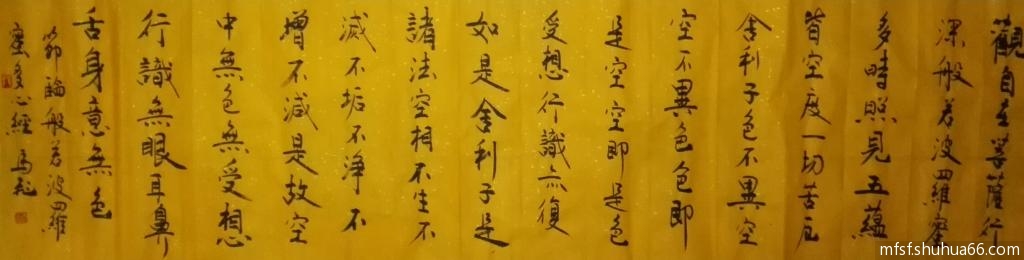 觀自在菩薩行
深般若波羅蜜
多時照見五蘊
皆空度一切苦厄
舍利子色不異空
空不異色色即
是空空即是色
受想行識亦復
如是舍利子是
諸法空相不生不
滅不垢不淨不
增不減是故空
中無色無受想
行識無眼耳鼻
舌身意無色
節論般若波羅
蜜多心經
mfsf.shuhua66.com